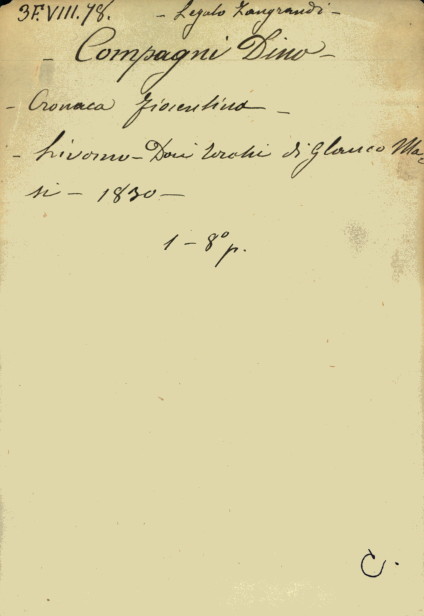 3F.VIII.78. - Legato Zangrandi -
- Compagni Dino -
- Cronaca Fiorentina -
- Livorno - Dai Torchi di Glauco Ma-
si - 1830 -
1 - 8º p.
C.